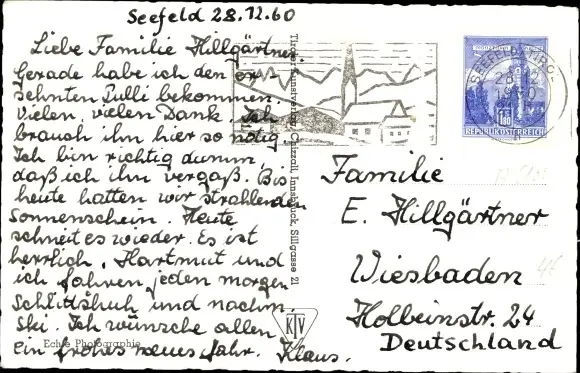 Seefeld 28.12.60
Liebe Familie Hillgärtner
Gerade habe ich den er
sehnten Pulli bekommen.
Vielen, vielen Dank. Ich
brauch ihn hier so nötig.
Ich bin richtig dumm,
daß ich ihn vergaß. Bis
heute hatten wir strahlenden
Sonnenschein. Heute
schneit es wieder. Es ist
herrlich. Hartmut und
ich fahren jeden morgen
Schlittshuh und nachm.
Ski. Ich wünsche allen
ein frohes neues Jahr. Klaus.
Echte Photographie
Chizzali, Innsbruck, Sillgasse 21
KTV
1.80
REPUBLIK ÖSTERREICH
Familie
E. Hillgärtner
Wiesbaden
Holbeinstr. 24
Deutschland